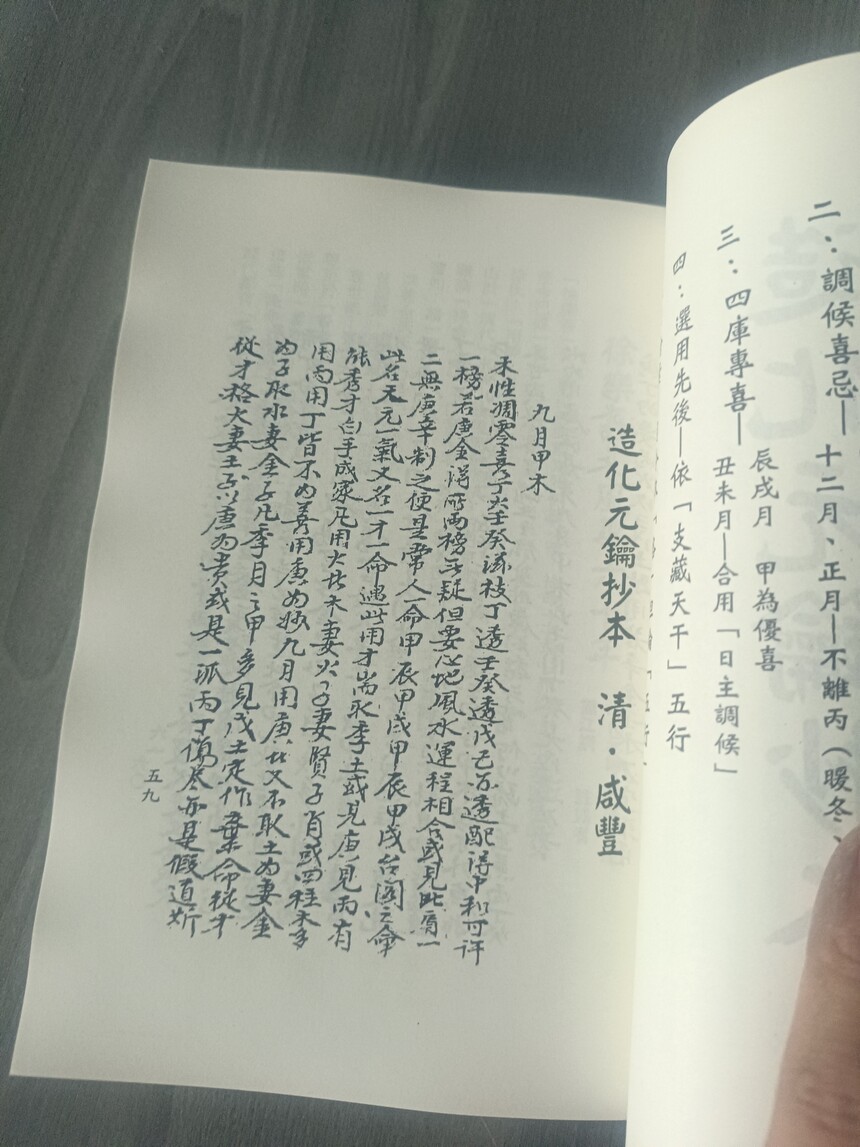 二：調候喜忌—十二月、正月—不離丙（暖冬、
辰戌月　甲為優喜
三：四庫專喜—丑未月—合用「日主調候」
四：選用先後—依「支藏天干」五行
造化元鑰抄本　清．咸豐
九月甲木
木性凋零喜丁火壬癸滋枝丁透壬癸透戊己亦透配得中和可许
一榜若庚金得所両榜无疑但要心地風水運程相合或見比肩一
二無庚辛制之便是常人一命甲辰甲戌甲辰甲戌台阁之命
此名天元一氣又名一才一命遇此用才耑取季土或見庚見丙有
能秀才白手成家凡用火者木妻火子妻賢子肖或四柱木多
用丙用丁皆不为善用庚为妙九月用庚者又不取土为妻金
为子取水妻金子凡季月之甲多見戊土定作棄命從才
從才格火妻土子以庚为貴或是一派丙丁傷尽亦是假道斯
五九